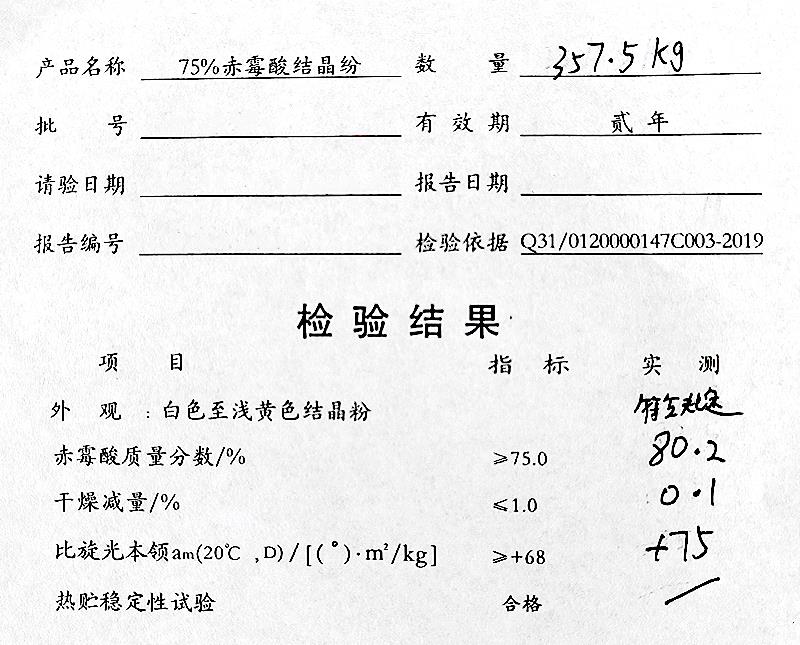 产品名称 75%赤霉酸结晶纷 数量 357.5 kg
批号 有效期 贰年
请验日期 报告日期
报告编号 检验依据 Q31/0120000147C003-2019
检验结果
项目 指标 实测
外观:白色至浅黄色结晶粉 符合规定
赤霉酸质量分数/% ≥75.0 80.2
干燥减量/% ≤1.0 0.1
比旋光本领am(20℃,D)/[(°)·m²/kg] ≥+68 +75
热贮稳定性试验 合格 /